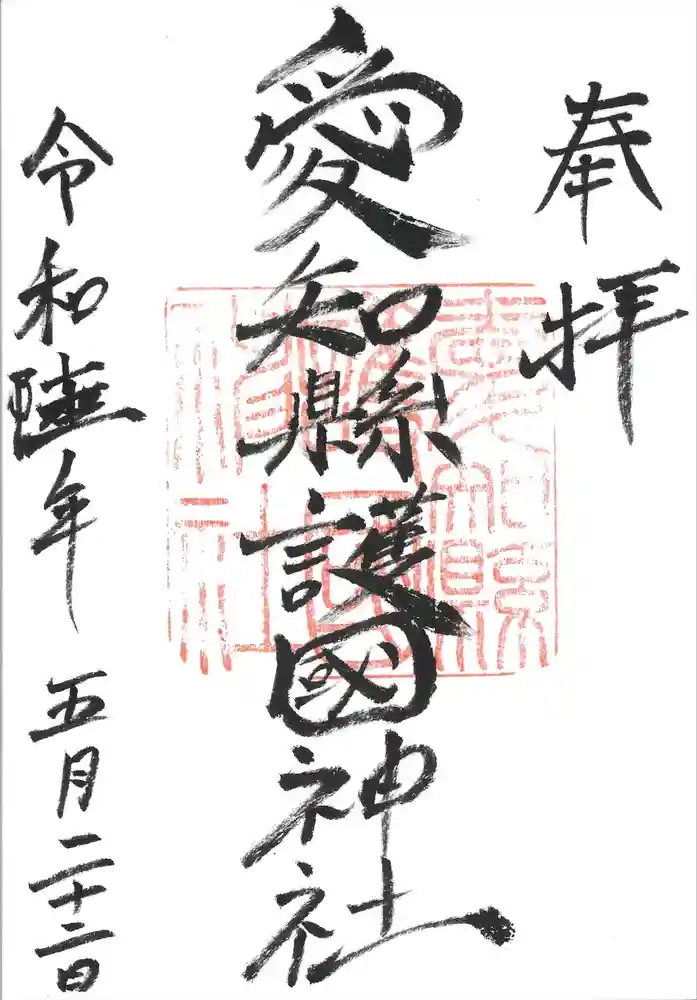 奉拝
愛知縣護國神社
愛知縣
護國
神社
令和陸年 五月二十二日